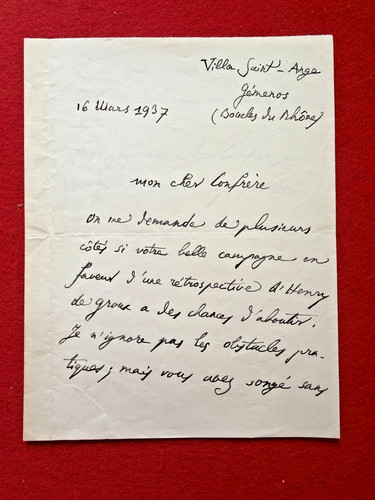 Villa Saint-Ange
Gémenos
16 Mars 1937
(Bouches du Rhône)
mon cher Confrère
On me demande de plusieurs
côtés si votre belle campagne en
faveur d'une rétrospective d'Henry
de groux a des chances d'aboutir.
Je n'ignore pas les obstacles pra-
tiques ; mais vous avez songé sans